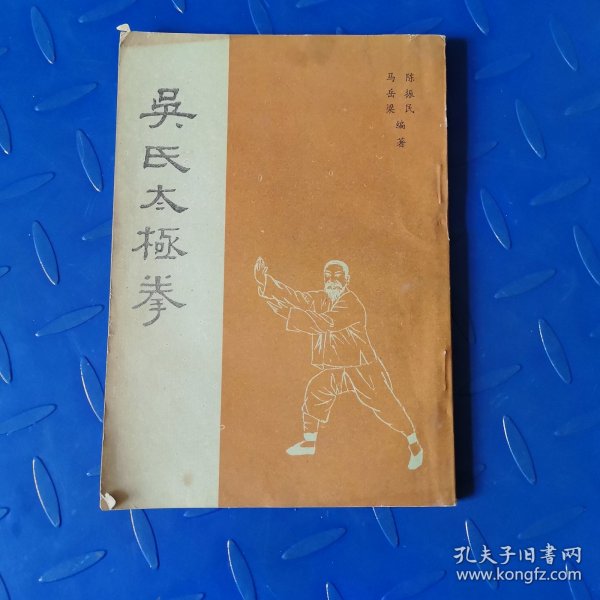 吳氏太極拳
陈振民
马岳梁
编著
孔夫子旧書网
www.kongfz.com